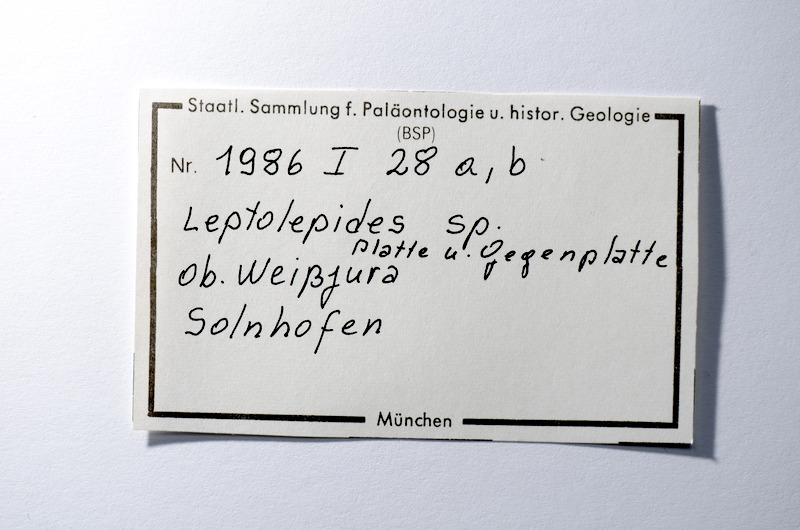 Staatl. Sammlung f. Paläontologie u. histor. Geologie
(BSP)
Nr. 1986 I 28 a, b
Leptolepides sp.
Platte u. Gegenplatte
ob. Weißjura
Solnhofen
München